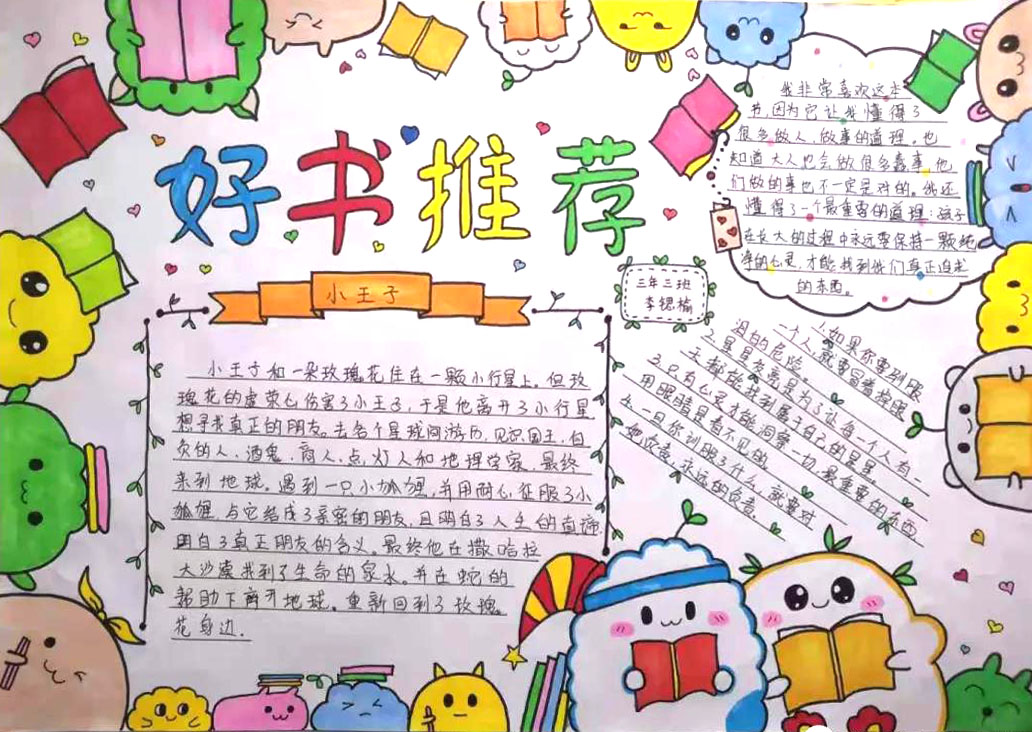 好书推荐
小王子
三年三班
李锶榆
小王子和一朵玫瑰花住在一颗小行星上。但玫
瑰花的虚荣心伤害了小王子,于是他离开了小行星
想寻找真正的朋友。去各个星球间游历,见识国王,自
负的人,酒鬼,商人,点灯人和地理学家,最终
来到地球。遇到一只小狐狸,并用耐心征服了小
狐狸,与它结成了亲密的朋友,且明白了人生的真谛
明白了真正朋友的含义。最终他在撒哈拉
大沙漠找到了生命的泉水。并在蛇的
帮助下离开地球。重新回到了玫瑰
花身边.
我非常喜欢这本
书,因为它让我懂得了
很多做人、做事的道理。也
知道大人也会做很多蠢事,他
们做的事也不一定是对的。我还
懂得了一个最重要的道理:孩子
在长大的过程中永远要保持一颗纯
净的心灵,才能找到他们真正追求
的东西。
1.如果你要驯服
一个人,就要冒着掉眼
泪的危险。
2.星星发亮是为了让每一个人有一
天都能找到属于自己的星星。
3.只有心灵才能洞察一切,最重要的东西,
用眼睛是看不见的。
4.一旦你驯服了什么,就要对
她负责,永远的负责.